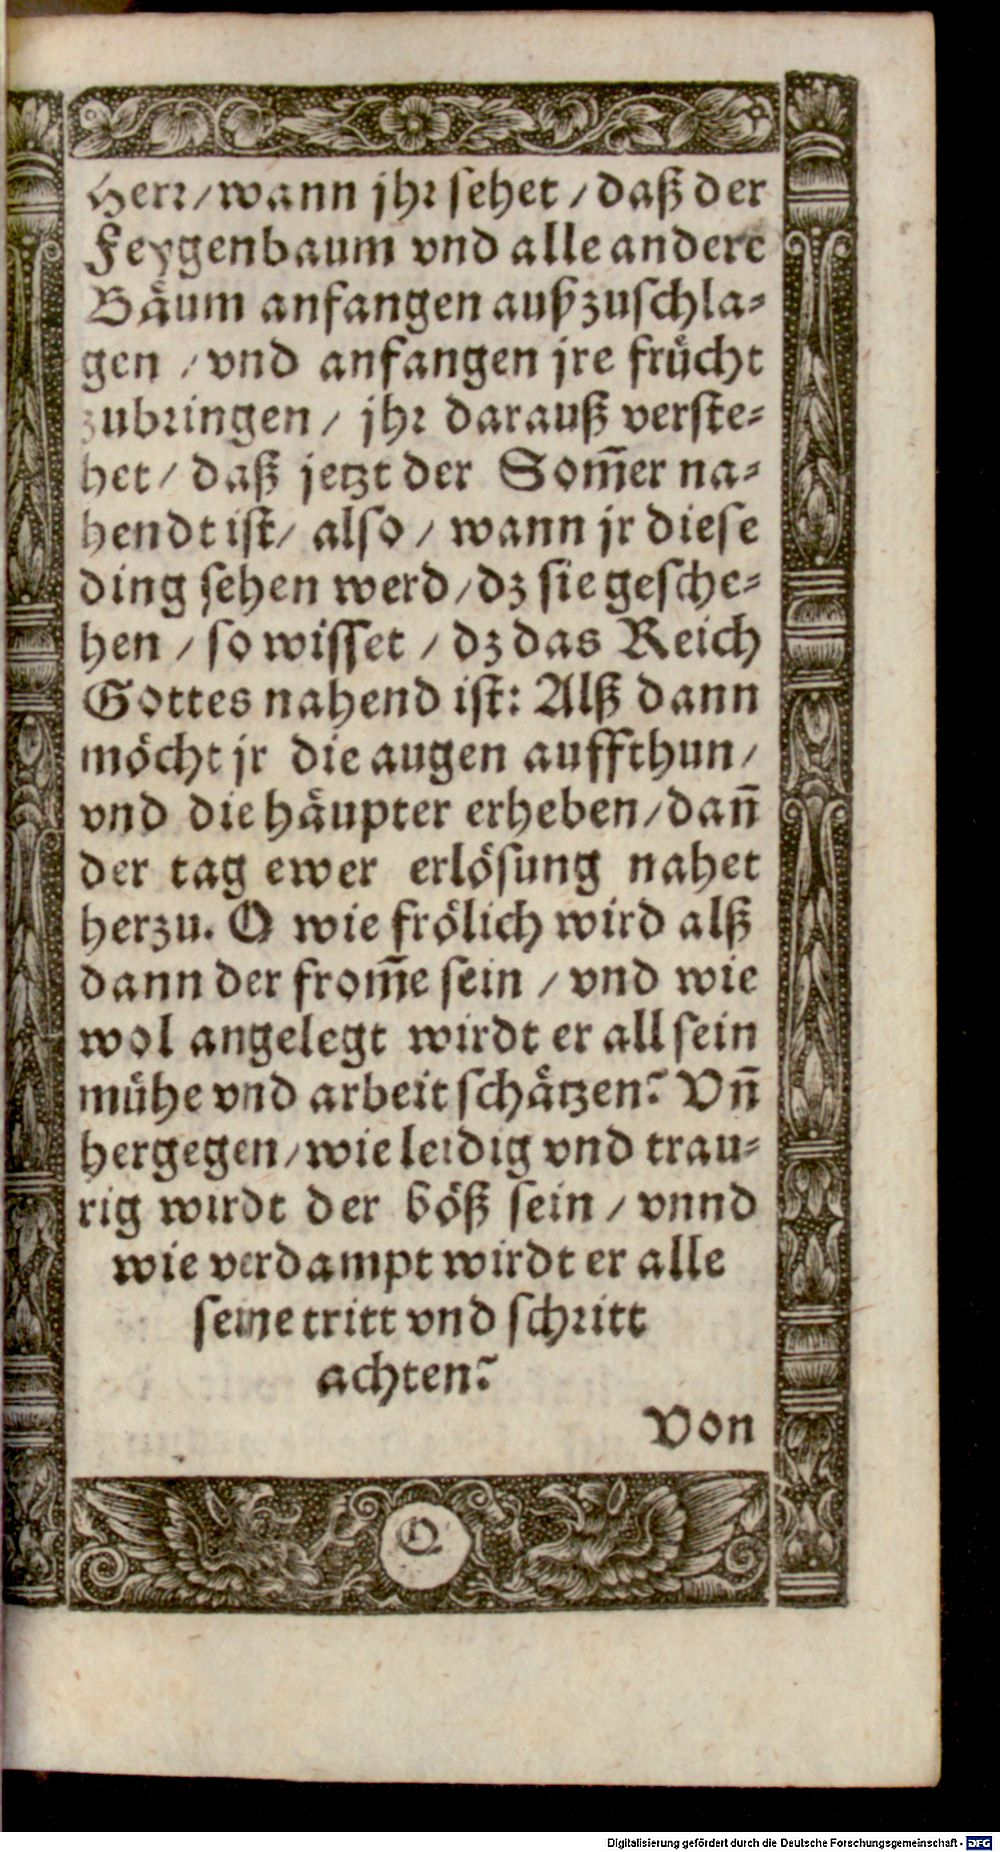 Herr/wann jhr sehet/daß der
Feygenbaum vnd alle andere
Bäum anfangen außzuschla⸗
gen/vnd anfangen jre frücht
zubringen/jhr darauß verste⸗
het/daß jetzt der Som̃er na⸗
hendt ist/also/wann jr diese
ding sehen werd/dz sie gesche⸗
hen/so wisset/dz das Reich
Gottes nahend ist: Alß dann
möcht jr die augen auffthun/
vnd die häupter erheben/dañ
der tag ewer erlösung nahet
herzu. O wie frölich wird alß
dann der from̃e sein/vnd wie
wol angelegt wirdt er all sein
mühe vnd arbeit schätzen? Vñ
hergegen/wie leidig vnd trau⸗
rig wirdt der böß sein/vnnd
wie verdampt wirdt er alle
seine tritt vnd schritt
achten?
Von
Q
Digitalisierung gefördert durch die Deutsche Forschungsgemeinschaft - DFG